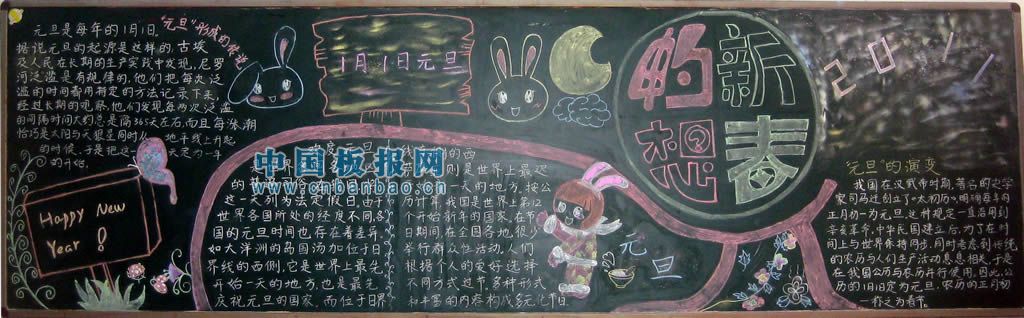 元旦是每年的1月1日。
"元旦"形成的传说
据说元旦的起源是这样的,古埃
及人民在长期的生产实践中发现,尼罗
河泛滥是有规律的,他们把每次泛
滥的时间都用特定的方法记录下来,
经过长期的观察,他们发现每两次泛滥
的间隔时间大约总是隔365天左右,而且每涨潮
恰巧是太阳与天狼星同时从 地平线上升起
的时候,于是把这一天定为一年
的开始.
Happy New
Year !
1月1日元旦
新春
的想
2011
中国板报网
www.cnbanbao.cn
这一天列为法定假日.由于
世界各国所处的经度不同,各
国的元旦时间也存在着差异.
如大洋洲的岛国汤加位于日
界线的西侧,它是世界上最先
开始一天的地方,也是最先
庆祝元旦的国家.而位于日界
则是世界上最迟
一天的地方.按公
历计算,我国是世界上第12
个开始新年的国家.在节
日期间在全国各地很少
举行群众性活动,人们
根据个人的爱好选择
不同方式过节.多种形式
和丰富的内容构成多元化节日.
元旦
"元旦"的演变
我国在汉武帝时期,著名的史学
家司马迁创立了"太初历",明确每年向
正月初一为元旦.这种规定一直沿用到
辛亥革命.中华民国建立后,为了在时
间上与世界保持同步,同时考虑到传统
的农历与人们生产活动息息相关,于是
在我国公历与农历并行使用.因此,公
历的1月1日定为元旦,农历的正月初
一称之为春节。